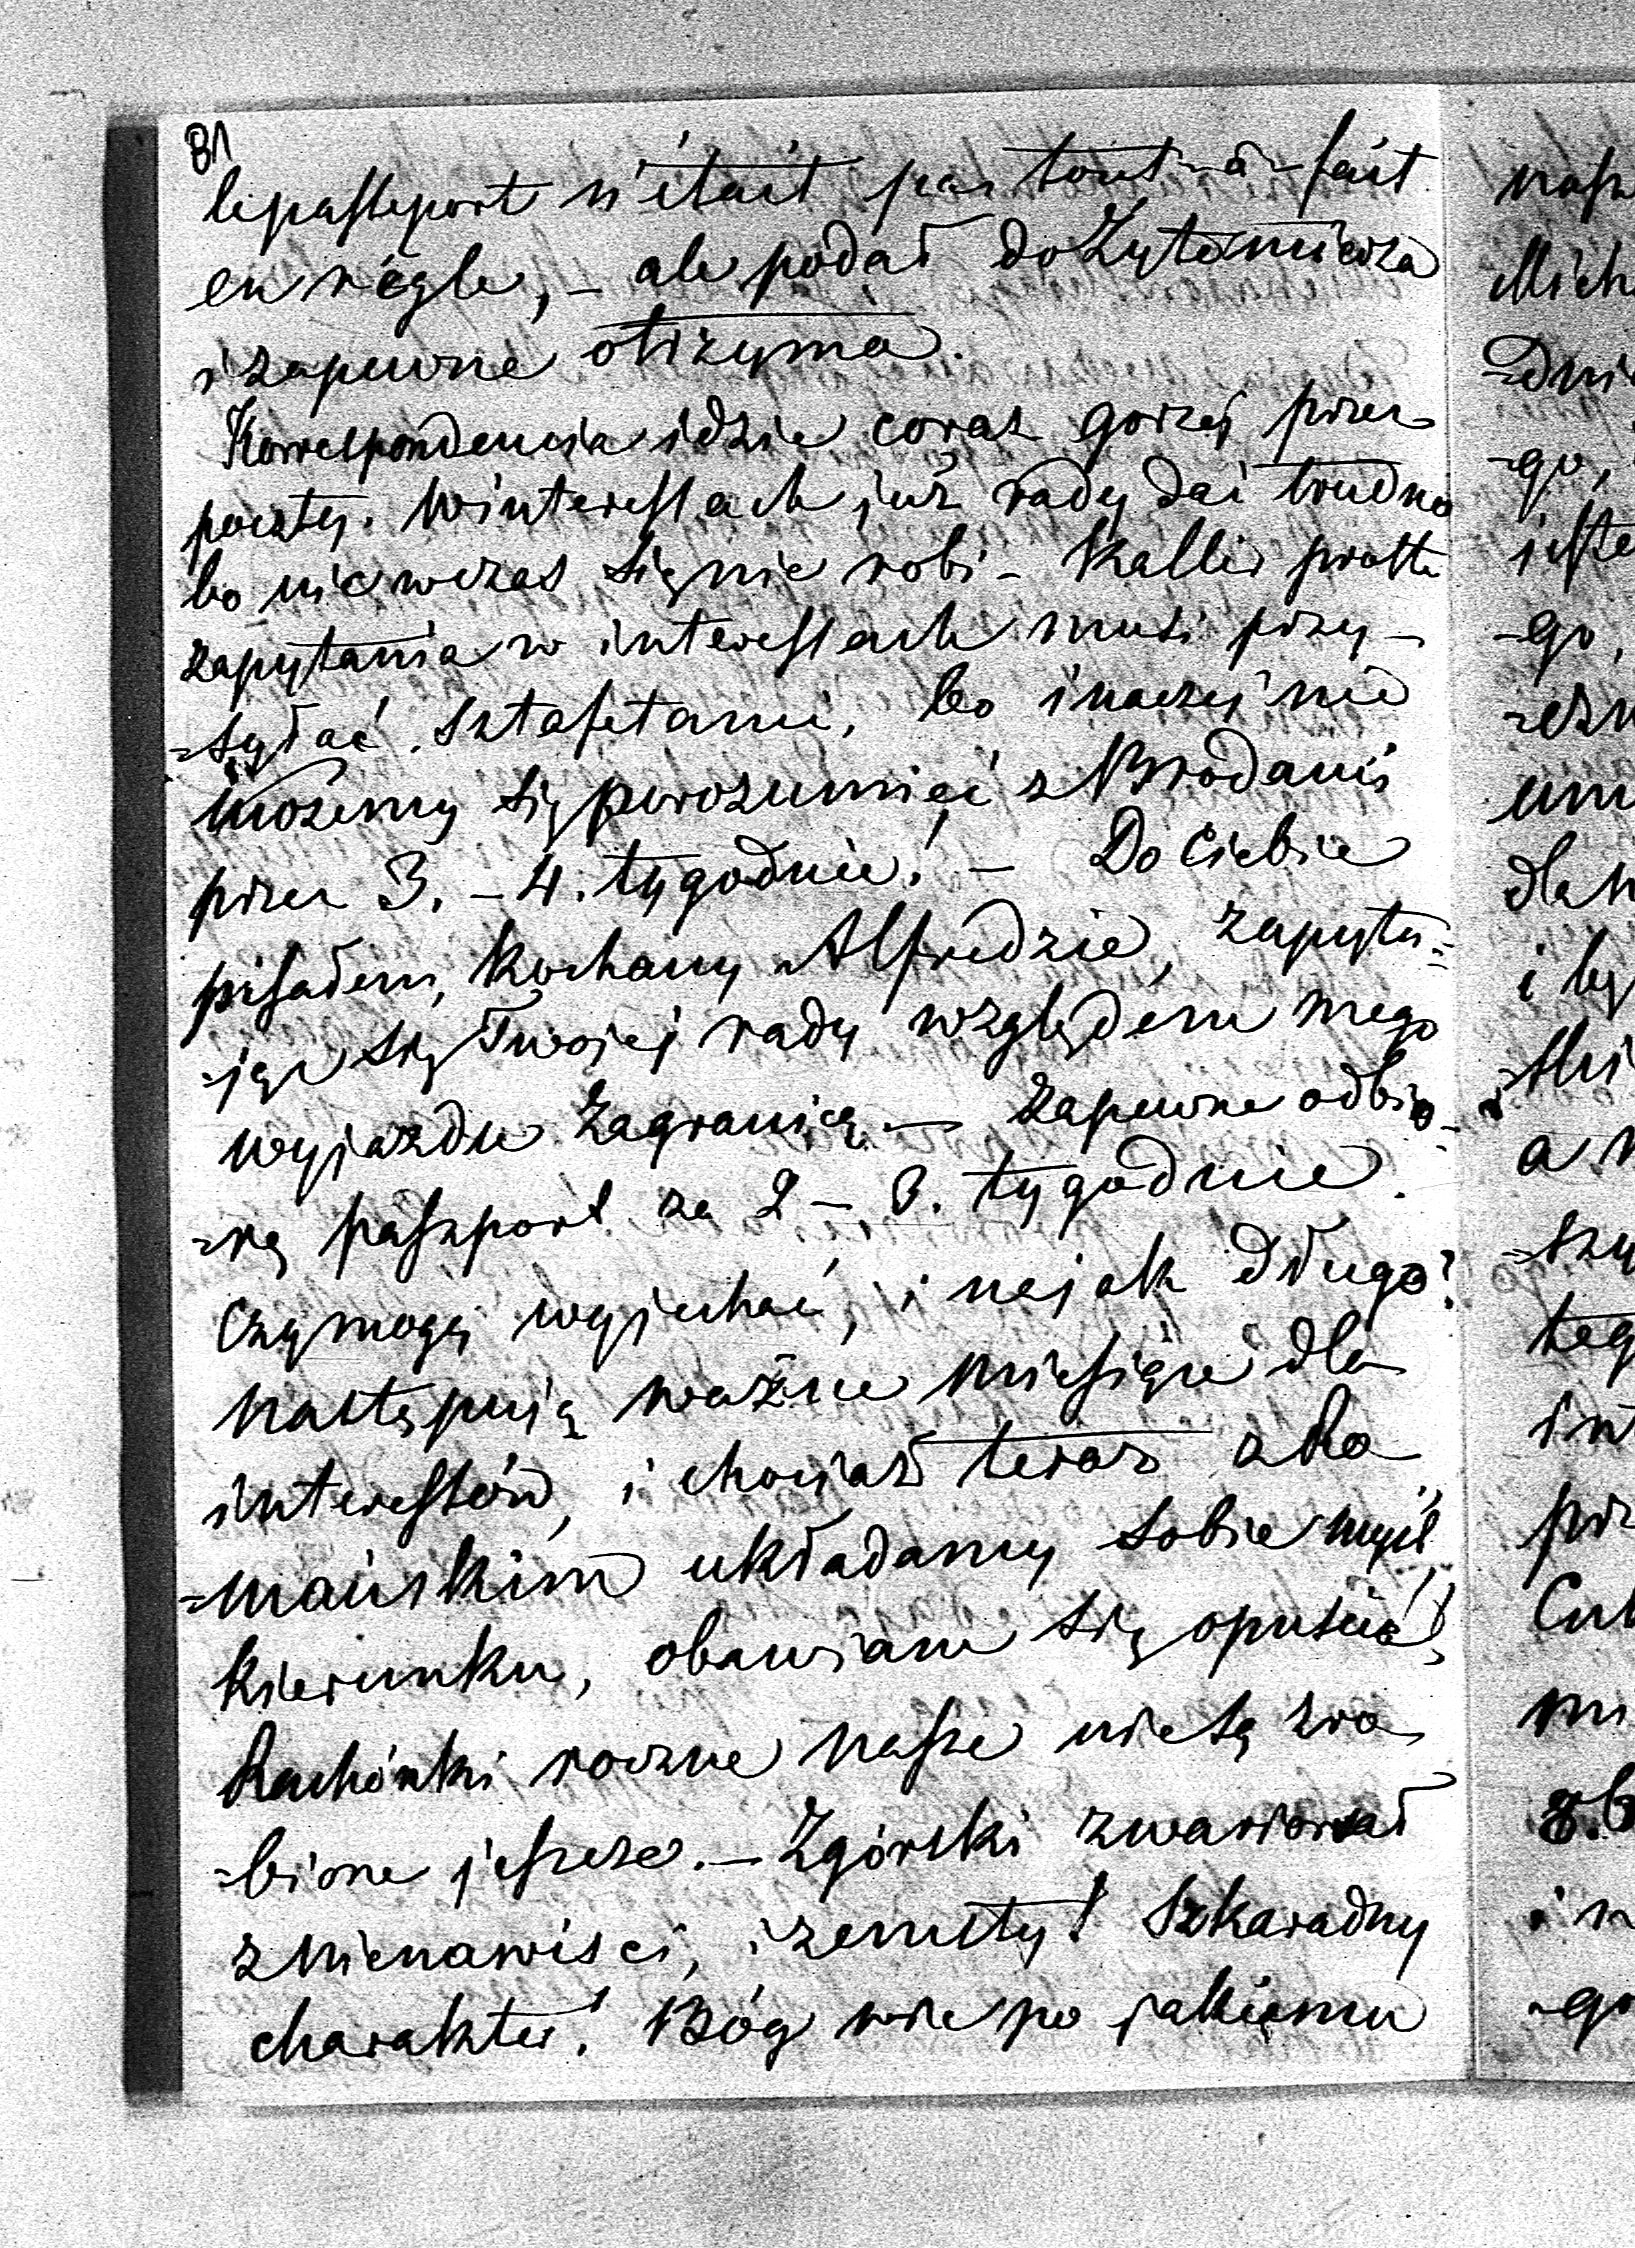 81
le passeport n'était pas tout-à-fait
en règle, – ale podał do Żytomierza
i zapewne otrzyma.
Korrespondencia idzie coraz gorzej przez
pocztę. W interessach już rady dać trudno
bo nic wczas się nie robi – Kaller
zapytania w interessach musi przy-
=syłać sztafetami, bo inaczej nie
możemy się porozumieć z Brodami
przez 3. – 4. tygodnie! – Do Ciebie
pisałem, kochany Alfredzie, zapytu=
=jąc się Twojej rady względem mego
wyjazdu zagranicę – Zapewne odbio-
=rę paszport za 2 – 3. tygodnie.
Czy mogę wyjechać, i na jak długo?
następują ważne miesiące dla
interessów, i chociaż teraz z Ro
=mańskim układamy sobie myśl,
kierunku, obawiam się opuścić!
Rachónki roczne nasze nie są zro
=bione jeszcze. – Zgórski zwariował
z nienawisci, i zemsty! Szkaradny
charakter! Bóg wie po jakiemu
nasz
Mich
=dni
=go,
jeste
=go,
=czn
um
dla n
i by
a n
=szy
teg
int
prz
mi
i n
=go